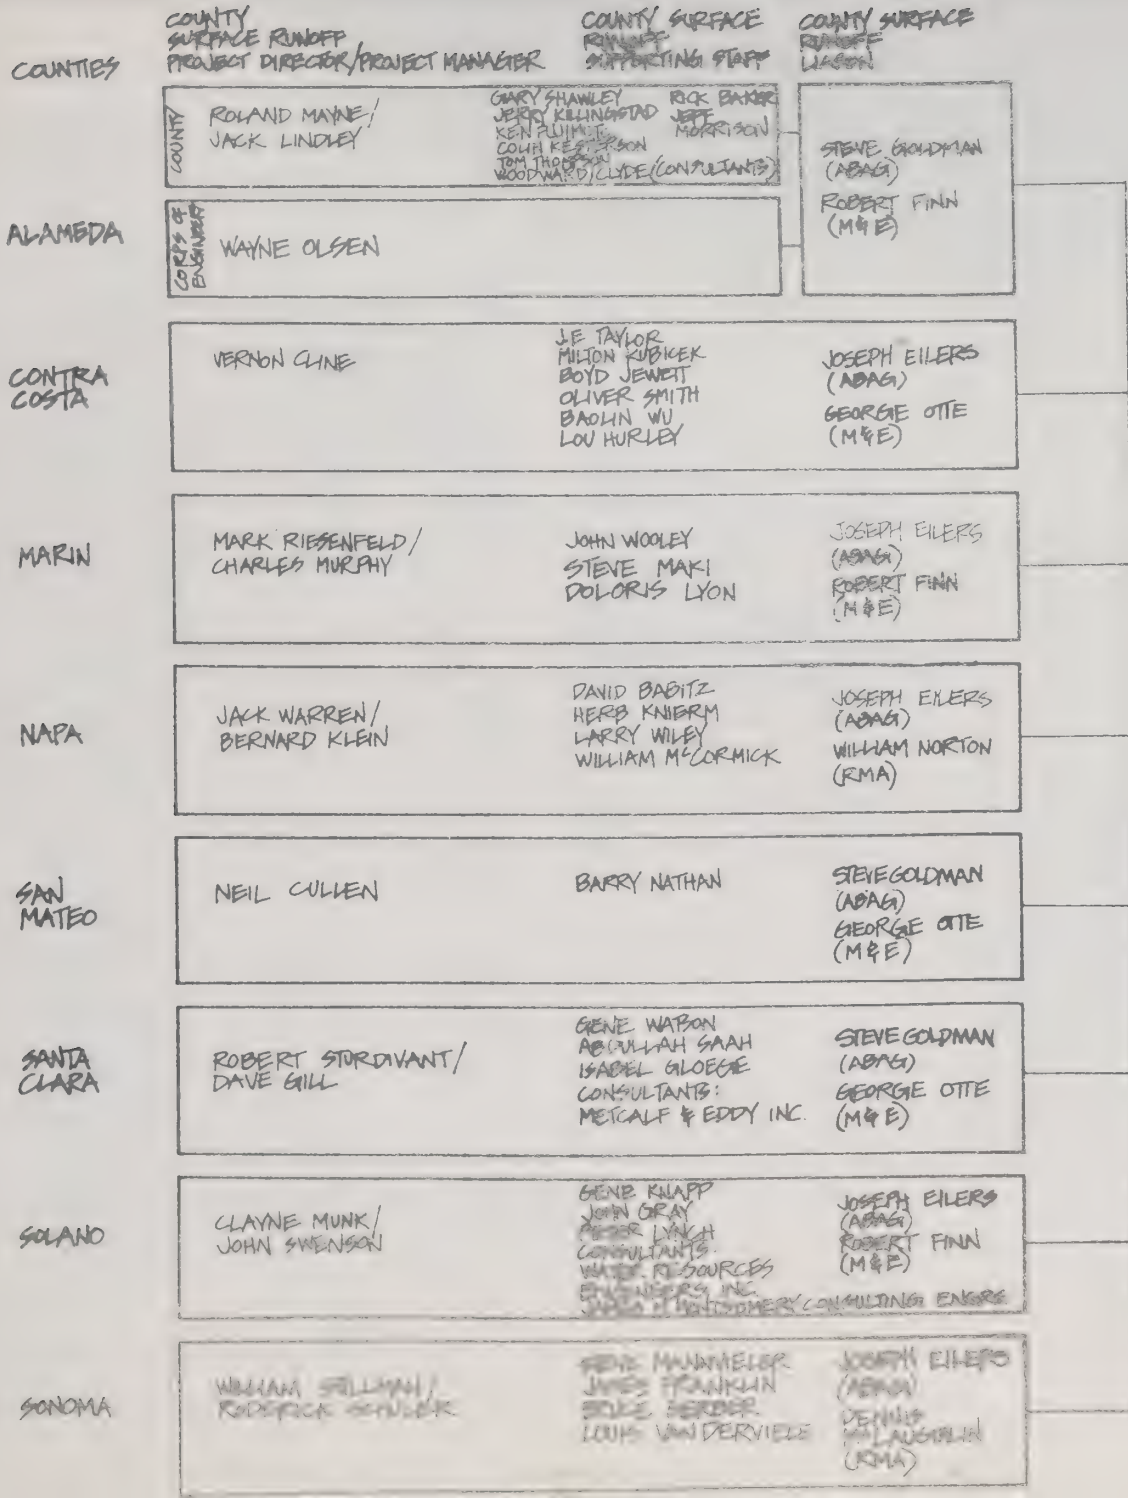 COUNTIES
COUNTY
SURFACE RUNOFF
PROJECT DIRECTOR/PROJECT MANAGER
COUNTY SURFACE
RUNOFF
SUPPORTING STAFF
COUNTY SURFACE
RUNOFF
LIASON
ALAMEDA
COUNTY
ROLAND MAYNE/
JACK LINDLEY
GARY SHAWLEY
JERRY KILLINGSTAD
KEN
COLIN
TOM THOMPSON
WOODWARD/CLYDE (CONSULTANTS)
RICK BAKER
JEFF
MORRISON
CORPS OF
ENGINEERS
WAYNE OLSEN
STEVE GOLDMAN
(ABAG)
ROBERT FINN
(M&E)
CONTRA
COSTA
VERNON CLINE
J.E TAYLOR
MILTON KUBICEK
BOYD JEWETT
OLIVER SMITH
BAOLIN WU
LOU HURLEY
JOSEPH EILERS
(ABAG)
GEORGE OTTE
(M&E)
MARIN
MARK RIESENFELD/
CHARLES MURPHY
JOHN WOOLEY
STEVE MAKI
DOLORIS LYON
JOSEPH EILERS
(ABAG)
ROBERT FINN
(M&E)
NAPA
JACK WARREN/
BERNARD KLEIN
DAVID BABITZ
HERB KNIERM
LARRY WILEY
WILLIAM McCORMICK
JOSEPH EILERS
(ABAG)
WILLIAM NORTON
(RMA)
SAN
MATEO
NEIL CULLEN
BARRY NATHAN
STEVE GOLDMAN
(ABAG)
GEORGE OTTE
(M&E)
SANTA
CLARA
ROBERT STURDIVANT/
DAVE GILL
GENE WABON
ABDULLAH SAAH
ISABEL GLOEGE
CONSULTANTS:
METCALF & EDDY INC.
STEVE GOLDMAN
(ABAG)
GEORGE OTTE
(M&E)
SOLANO
CLAYNE MUNK/
JOHN SWENSON
GENE KNAPP
JOHN GRAY
PETER LYNCH
CONSULTANTS:
WATER RESOURCES
ENGINEERS INC.
JAMES M MONTGOMERY CONSULTING ENGRS
JOSEPH EILERS
(ABAG)
ROBERT FINN
(M&E)
SONOMA
WILLIAM STILLMAN/
RODERICK
JAMES FRANKLIN
BRUCE
LOUIS VANDERVIELE
JOSEPH EILERS
(ABAG)
DENNIS
McLAUGHLIN
(RMA)